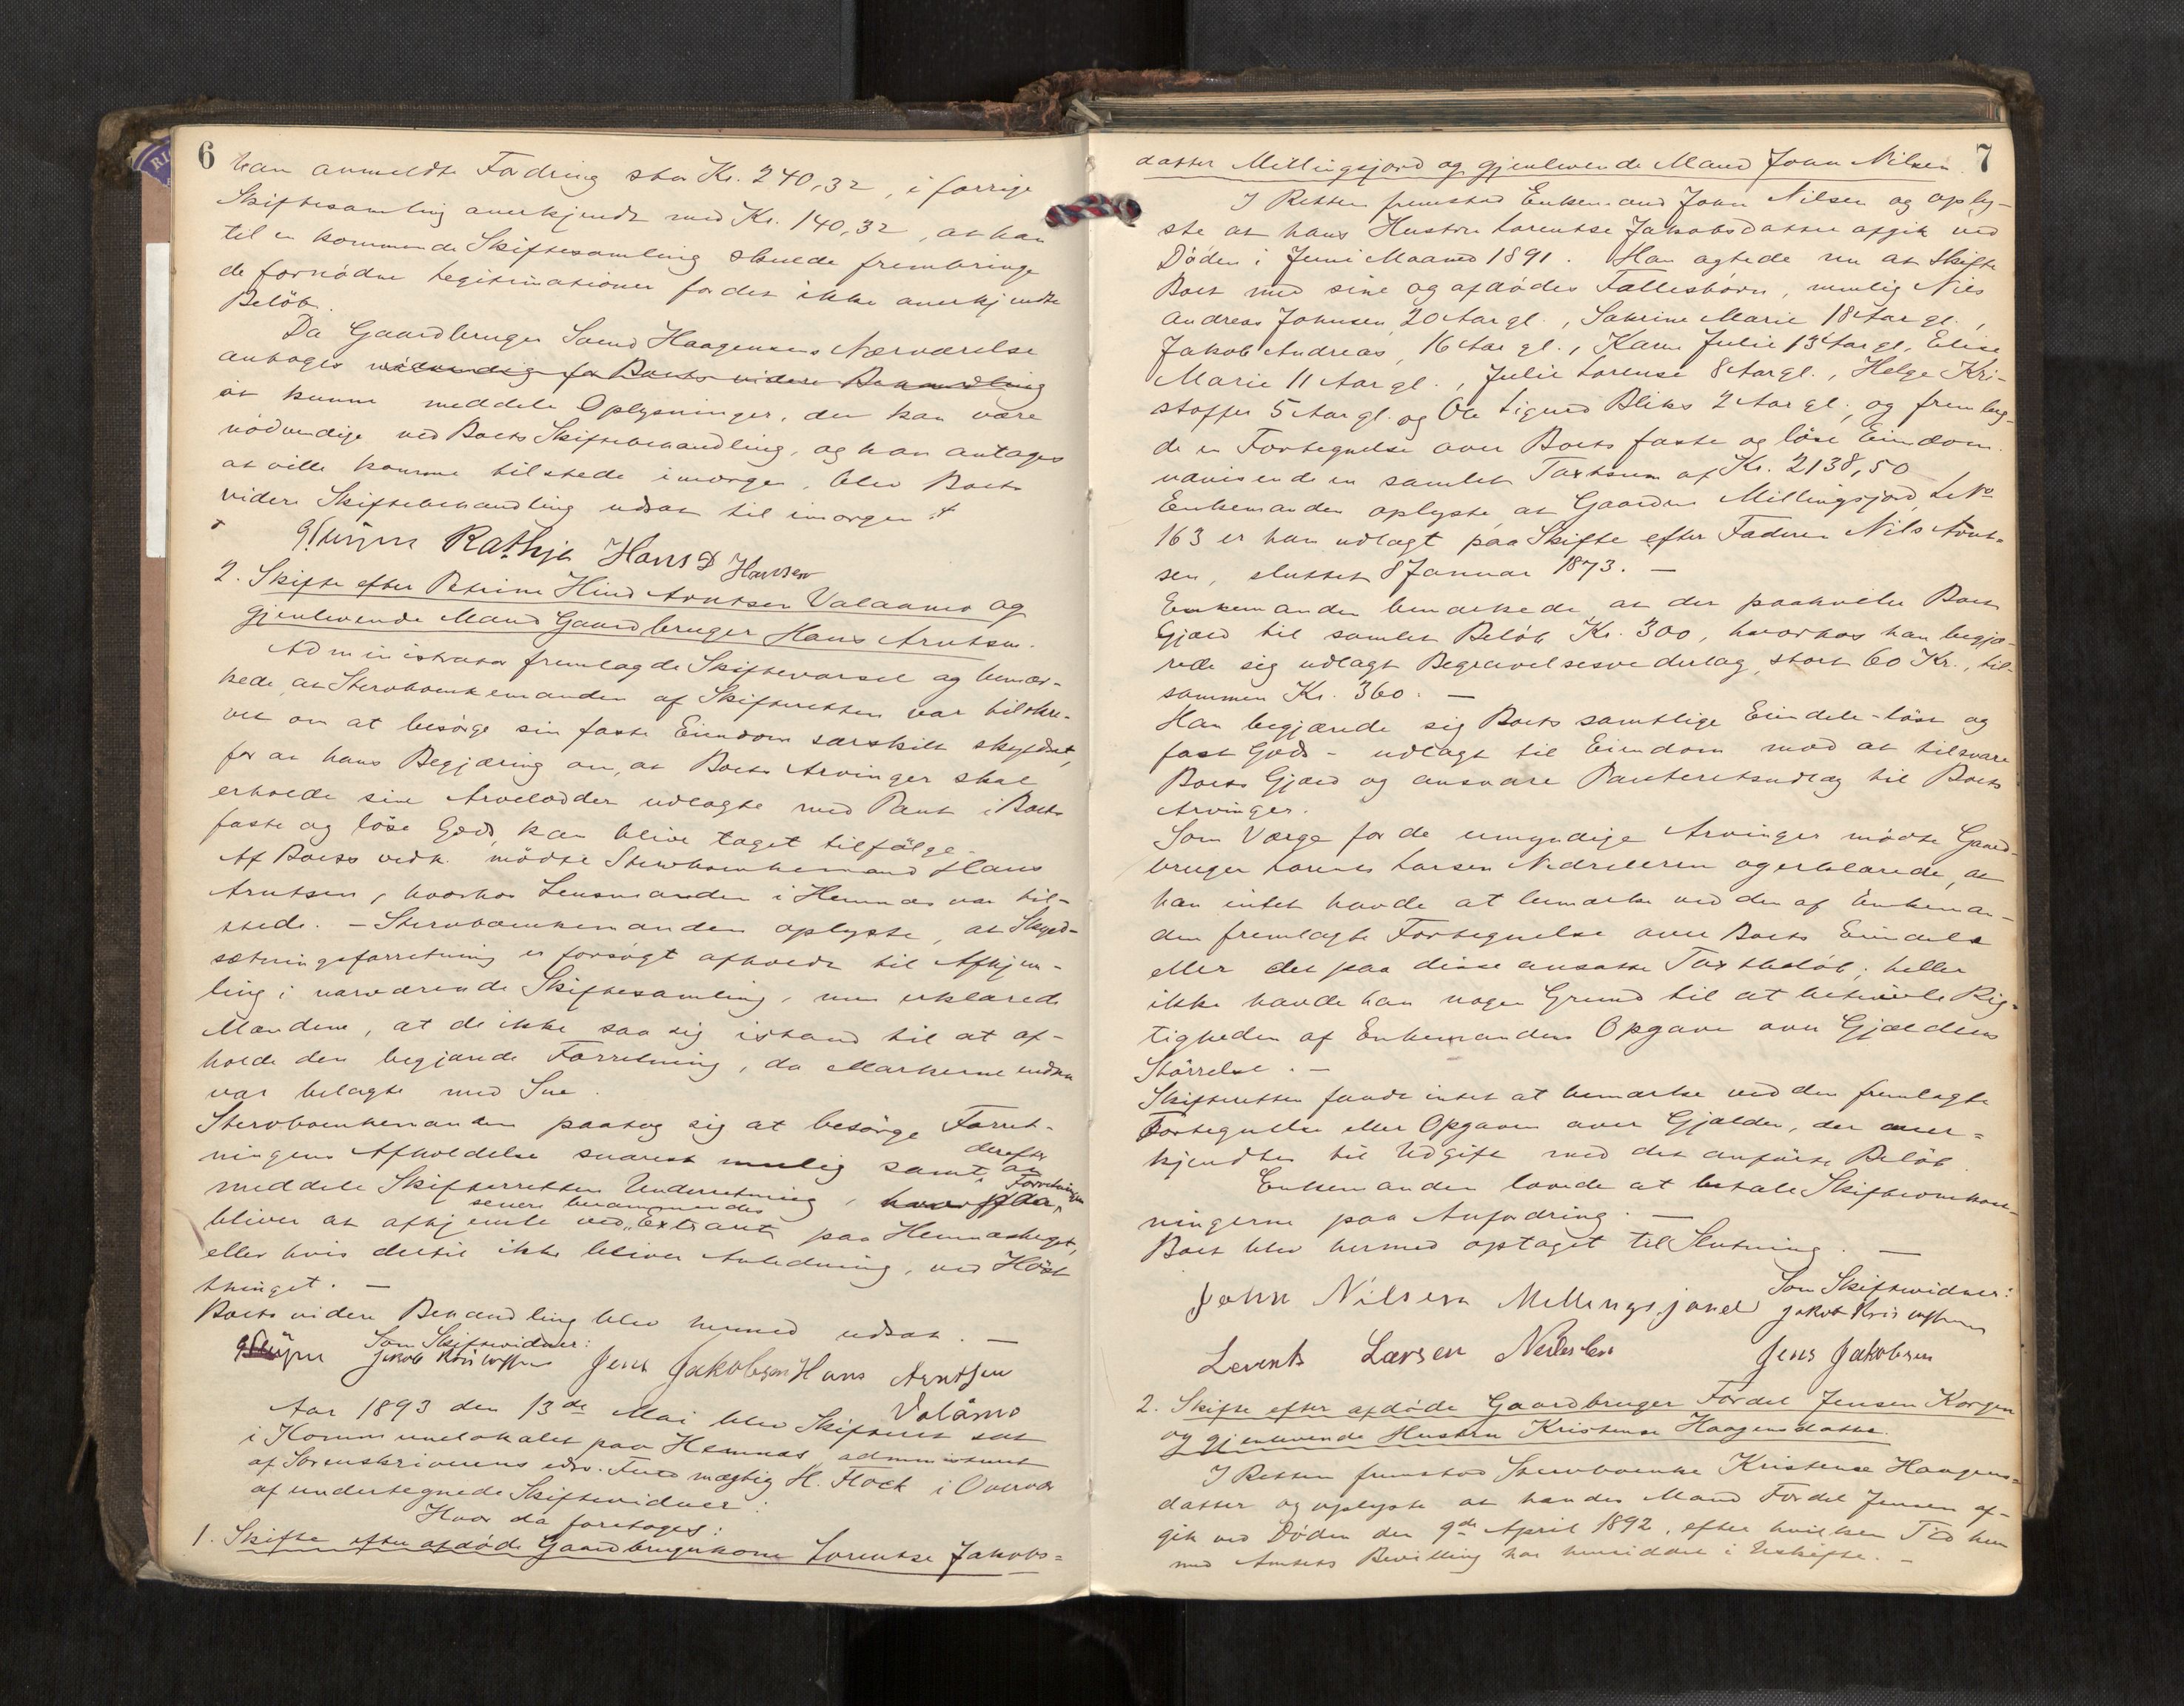 6
han anmeldte Fordring stor Kr. 240,32, i forrige
Skiftesamling anerkjendt med Kr. 140,32, at han
til en kommende Skiftesamling skulde frembringe
de fornødne Legitimationer for det ikke anerkjendte
Beløb.
Da Gaardbruger Svend Haagensens Nærværelse
antages nødvendig for Boets videre Behandling
at kunne meddele Oplysninger, der kan være
nødvendige ved Boets Skiftebehandling, og han antages
at ville komme tilstede imorgen, blev Boets
videre Skiftebehandling udsat til imorgen.
Rathje Hans D Hansen
2. Skifte efter Petrine Hind Arntsen Valaamo og
gjenlevende Mand Gaardbruger Hans Arntsen.
Administrator fremlagde Skiftevarsel og bemær-
kede, at Stervboenkemanden af Skifteretten var tilskre-
vet om at besørge sin faste Eiendom særskilt skyldsat,
for at hans Begjæring om, at Boets Arvinger skal
erholde sine Arvelodder udlagte med Pant i Boets
faste og løse Gods kan blive taget tilfølge.
Af Boets vedk. mødte Stervboenkemand Hans
Arntsen, hvorhos Lensmanden i Hemnæs var til-
stede. - Stervboenkemanden oplyste, at Skyld-
sætningsforretning er forsøgt afholdt til Afhjem-
ling i nærværende Skiftesamling, men erklærede
Mændene, at de ikke saa sig istand til at af-
holde den begjærede Forretning, da Markerne endnu
var belagte med Sne.
Stervboenkemanden paatog sig at besørge Forret-
ningens Afholdelse snarest mulig samt derefter at
meddele Skifteretten Underretning, hvorefter Forretningen
bliver at afhjemle ved senere berammendes Extraret paa Hemnæsberget,
eller hvis dertil ikke bliver Anledning, ved Høst
thinget. -
Boets videre Behandling blev hermed udsat. -
Som Skiftevidner:
Jakob Kristoffersen Jens Jakobsen Hans Arntsen
Valåmo
Aar 1893 den 13de Mai blev Skifteret sat
i Kommunelokalet paa Hemnæs administreret
af Sorenskriverens edsv. Fuldmægtig H. Flock i Overvær
af undertegnede Skiftevidner:
Hvor da foretoges:
1. Skifte efter afdøde Gaardbrugerkone Lorentse Jakobs=
7
datter Millingsjord og gjenlevende Mand John Nilsen
I Retten fremstod Enkemand John Nilsen og oply-
ste at hans Hustru Lorentse Jakobsdatter afgik ved
Døden i Juni Maaned 1891. Han agtede nu at skifte
Boet med sine og afdødes Fællesbørn, nemlig Nils
Andreas Johnsen 20 Aar gl., Sabrine Marie 18 Aar gl.,
Jakob Andreas, 16 Aar gl., Karen Julie 13 Aar gl., Elise
Marie 11 Aar gl., Julie Lorense 8 Aar gl., Helge Kri-
stoffer 5 Aar gl. og Ole Sigurd Bliks 2 Aar gl., og fremlag-
de en Fortegnelse over Boets faste og løse Eiendom
udvisende en samlet Taxtsum af Kr. 2138,50
Enkemanden oplyste, at Gaarden Millingsjord, L No
163 er ham udlagt paa Skifte efter Faderen Nils Arnt-
sen, sluttet 8 Januar 1873. -
Enkemanden bemærkede at der paahviler Boet
Gjæld til samlet Beløb Kr. 300, hvorhos han begjæ-
rede sig udlagt Begravelsesvederlag, stort 60 Kr., til-
sammen Kr. 360. -
Han begjærede sig Boets samtlige Eiendele - løst og
fast Gods - udlagt til Eiendom mod at tilsvare
Boets Gjæld og ansvare Panteretsudlæg til Boets
Arvinger.
Som Værge for de umyndige Arvinger mødte Gaard-
bruger Lorents Larsen Nedreleren og erklærede, at
han intet havde at bemærke ved den af Enkeman-
den fremlagte Fortegnelse over Boets Eiendele
eller det paa disse ansatte Taxtbeløb; heller
ikke havde han nogen Grund til at betvivle Rig-
tigheden af Enkemandens Opgave over Gjældens
Størrelse. -
Skifteretten fandt intet at bemærke ved den fremlagte
Fortegnelse eller Opgaven over Gjælden, der aner=
kjendtes til Udgift med det anførte Beløb.
Enkemanden lovede at betale Skifteomkost-
ningerne paa Anfordring. -
Boet blev hermed optaget til Slutning. -
Som Skiftevidner:
John Nilsen Millingsjord Jakob Kristoffersen
Lorents Larsen Nedreleren Jens Jakobsen
2. Skifte efter afdøde Gaardbruger Fordel Jensen Korgen
og gjenlevende Hustru Kristense Haagensdatter.
I Retten fremstod Stervboenke Kristense Haagens=
datter og oplyste at hendes Mand Fordel Jensen af-
gik ved Døden den 9de April 1892, efter hvilken Tid hun
med Amtets Bevilling har hensiddet i Uskifte. -